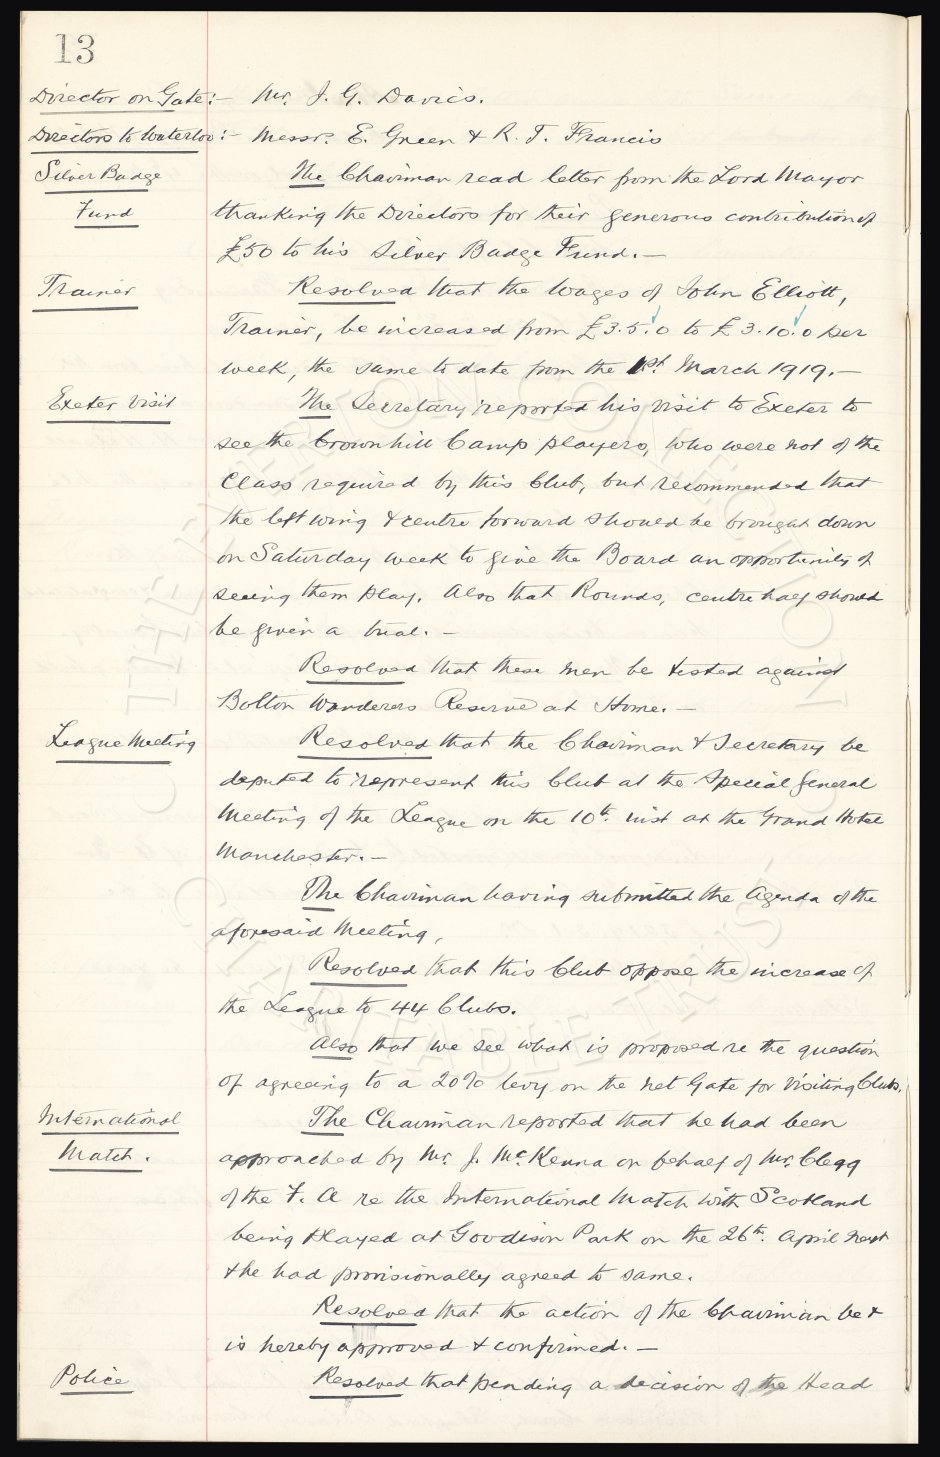 13
Director on Gate:- Mr. J. G. Davies.
Directors to Waterloo:- Messrs. E. Green & R. T. Francis
Silver Badge The Chairman read letter from the Lord Mayor
Fund thanking the Directors for their generous contribution of
£50 to his Silver Badge Fund.—
Trainer Resolved that the wages of John Elliott,
Trainer, be increased from £3.5.0 to £3.10.0 per
week, the same to date from the 1st. March 1919.—
Exeter Visit The Secretary reported his visit to Exeter to
see the Crownhill Camp players, who were not of the
Class required by this Club, but recommended that
the left wing & centre forward should be brought down
on Saturday week to give the Board an opportunity of
seeing them play. Also that Rounds, centre half should
be given a trial.—
Resolved that these men be tested against
Bolton Wanderers Reserve at Home.—
League Meeting Resolved that the Chairman & Secretary be
deputed to represent this Club at the Special General
Meeting of the League on the 10th. inst at the Grand Hotel
Manchester.—
The Chairman having submitted the Agenda of the
aforesaid Meeting,
Resolved that this Club oppose the increase of
the League to 44 Clubs.
Also that we see what is proposed re the question
of agreeing to a 20% levy on the net Gate for Visiting Clubs.
International The Chairman reported that he had been
Match. approached by Mr. J. McKenna on behalf of Mr. Clegg
of the F. A re the International Match with Scotland
being played at Goodison Park on the 26th. April next
& he had provisionally agreed to same.
Resolved that the action of the Chairman be &
is hereby approved & confirmed.—
Police Resolved that pending a decision of the Head